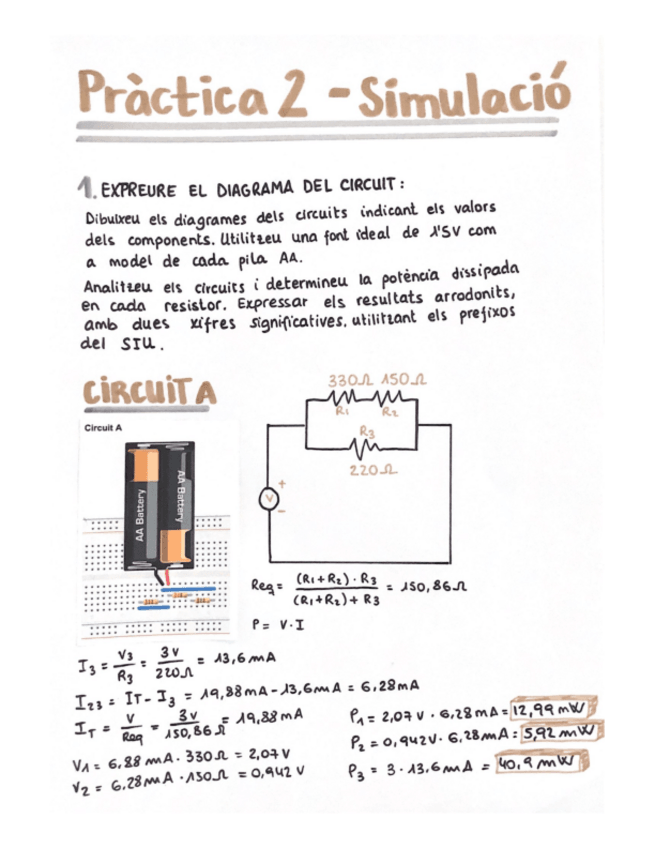 Pràctica 2 - Simulació
1. EXPREURE EL DIAGRAMA DEL CIRCUIT:
Dibuixeu els diagrames dels circuits indicant els valors
dels components. Utilitzeu una font ideal de 1'5V com
a model de cada pila AA.
Analitzeu els circuits i determineu la potència dissipada
en cada resistor. Expressar els resultats arrodonits,
amb dues xifres significatives, utilitzant els prefixos
del SIU.
CIRCUIT A
330Ω 150Ω
R1 R2
R3
220Ω
V
+
-
Circuit A
AA Battery
AA Battery
Req = (R1+R2)·R3 / (R1+R2)+R3 = 150,86Ω
P = V·I
I3 = V3/R3 = 3V/220Ω = 13,6mA
I23 = IT - I3 = 19,88mA - 13,6mA = 6,28mA
IT = V/Req = 3V/150,86Ω = 19,88mA
V1 = 6,28mA·330Ω = 2,07V
V2 = 6,28mA·150Ω = 0,942V
P1 = 2,07V·6,28mA = 12,99mW
P2 = 0,942V·6,28mA = 5,92mW
P3 = 3·13,6mA = 40,9mW